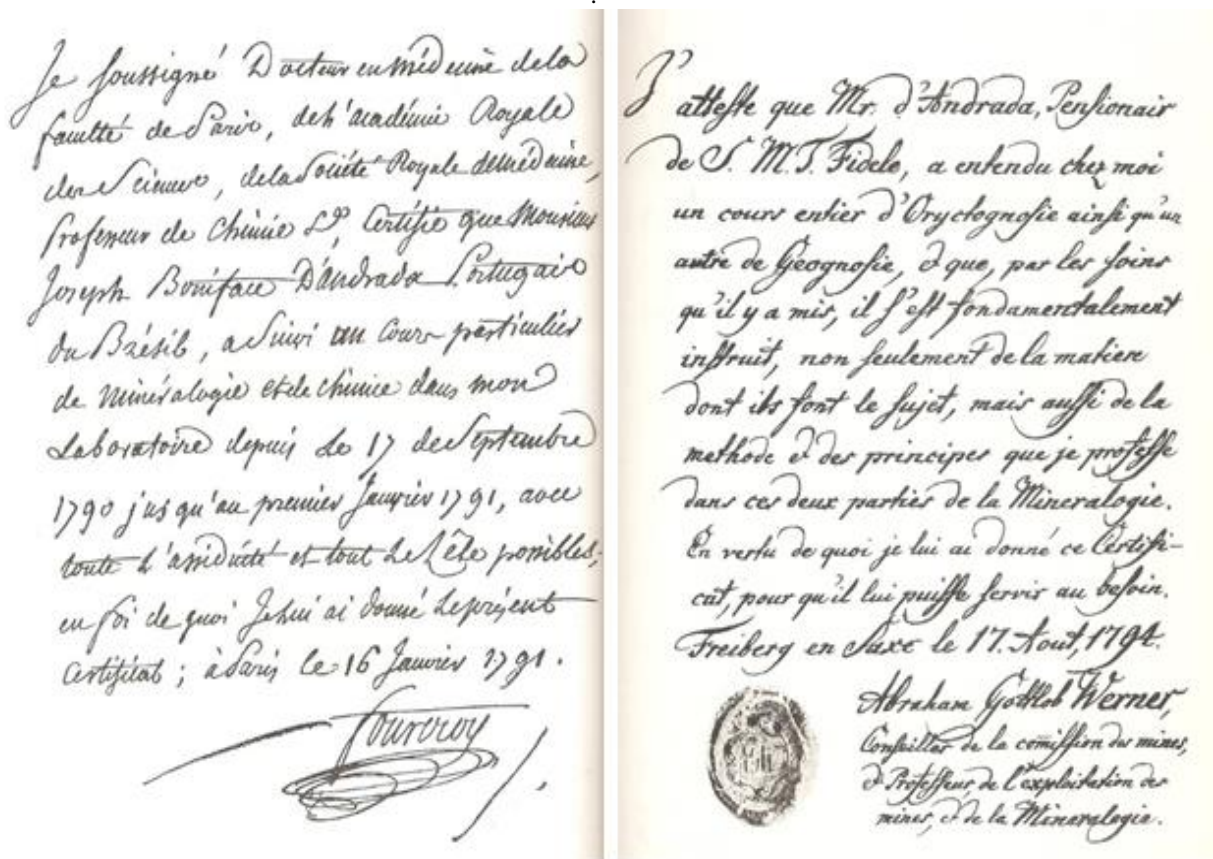 Je soussigné Docteur en médecine de la
faculté de Paris, de l'académie Royale
des Sciences, de la Société Royale de médecine,
professeur de Chimie &c, Certifie que Monsieur
Joseph Boniface D'Andrada Portugais
du Brésil, a Suivi un Cours particulier
de Minéralogie et de chimie dans mon
Laboratoire depuis Le 17 de Septembre
1790 jusqu'au premier Janvier 1791, avec
toute L'assiduité et tout Le Zèle possibles;
en foi de quoi Je lui ai donné Le présent
Certificat; à Paris ce 16 Janvier 1791.
Fourcroy
J'atteste que Mr. d'Andrada, Pensionair
de S. M. T. Fidele, a entendu chez moi
un cours entier d'Oryctognosie ainsi qu'un
autre de Géognosie, & que, par les soins
qu'il y a mis, il s'est fondamentalement
instruit, non seulement de la matière
dont ils font le sujet, mais aussi de la
methode & des principes que je professe
dans ces deux parties de la Mineralogie.
En vertu de quoi je lui ai donné ce Certifi-
cat, pour qu'il lui puisse servir au besoin.
Freiberg en Saxe le 17. Aout, 1794.
Abraham Gottlob Werner,
Conseiller de la comission des mines,
& Professeur de l'exploitation des
mines, & de la Mineralogie.